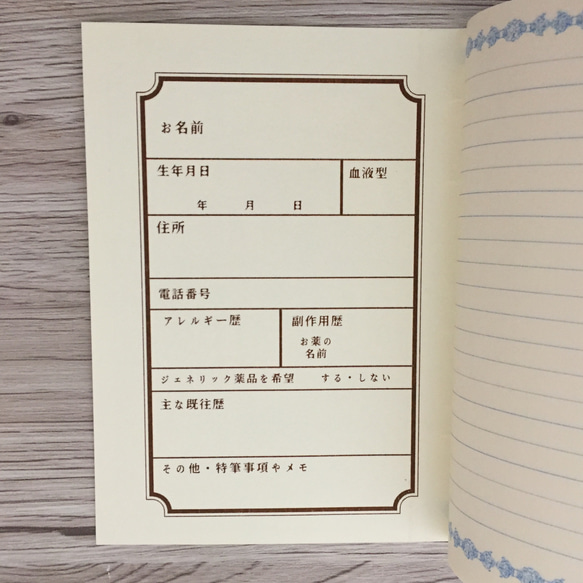 お名前
生年月日
血液型
年 月 日
住所
電話番号
アレルギー歴
副作用歴
お薬の
名前
ジェネリック薬品を希望 する・しない
主な既往歴
その他・特筆事項やメモ